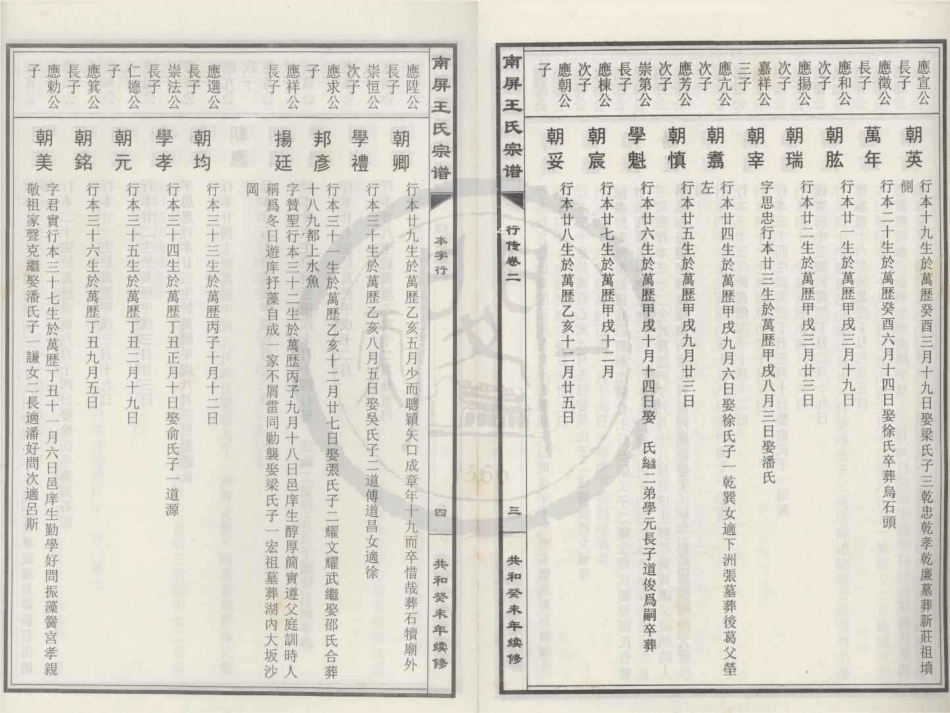 南屏王氏宗谱
行传卷二
三
共和癸未年续修
應宣公長子
朝英
行本十九生於萬歷癸酉三月十九日娶梁氏子三乾忠乾孝乾廉墓葬新莊祖墳
側
應徵公長子
萬年
行本二十生於萬歷癸酉六月十四日娶徐氏卒葬烏石頭
應和公次子
朝肱
行本廿一生於萬歷甲戌三月十九日
應揚公次子
朝瑞
行本廿二生於萬歷甲戌三月廿三日
嘉祥公三子
朝宰
字思忠行本廿三生於萬歷甲戌八月三日娶潘氏
應亢公次子
朝翥
行本廿四生於萬歷甲戌九月六日娶徐氏子一乾巽女適下洲張墓葬後葛父塋
左
應芳公次子
朝慎
行本廿五生於萬歷甲戌九月廿三日
崇第公長子
學魁
行本廿六生於萬歷甲戌十月十四日娶 氏繼二弟學元長子道俊爲嗣卒葬
應棟公次子
朝宸
行本廿七生於萬歷甲戌十二月
應朝公子
朝妥
行本廿八生於萬歷乙亥十二月廿五日
南屏王氏宗谱
本字行
四
共和癸未年续修
應陞公長子
朝卿
行本廿九生於萬歷乙亥五月少而聰穎矢口成章年十九而卒惜哉葬石犢廟外
崇恒公次子
學禮
行本三十生於萬歷乙亥八月五日娶吳氏子二道傳道昌女適徐
應求公子
邦彥
行本三十一生於萬歷乙亥十二月廿七日娶張氏子二耀文耀武繼娶邵氏合葬
十八九都上水魚
應祥公長子
揚廷
字贊聖行本三十二生於萬歷丙子九月十八日邑庠生醇厚簡實遵父庭訓時人
稱爲冬日遊庠抒藻自成一家不屑雷同勦襲娶梁氏子一宏祖墓葬湖內大坂沙
岡
應選公長子
朝均
行本三十三生於萬歷丙子十月十二日
崇法公長子
學孝
行本三十四生於萬歷丁丑正月十日娶俞氏子一道源
仁德公子
朝元
行本三十五生於萬歷丁丑二月十九日
應箕公長子
朝銘
行本三十六生於萬歷丁丑九月五日
應勅公子
朝美
字君實行本三十七生於萬歷丁丑十一月六日邑庠生勤學好問振藻黌宮孝親
敬祖家聲克繼娶潘氏子一謙女二長適潘好問次適呂斯